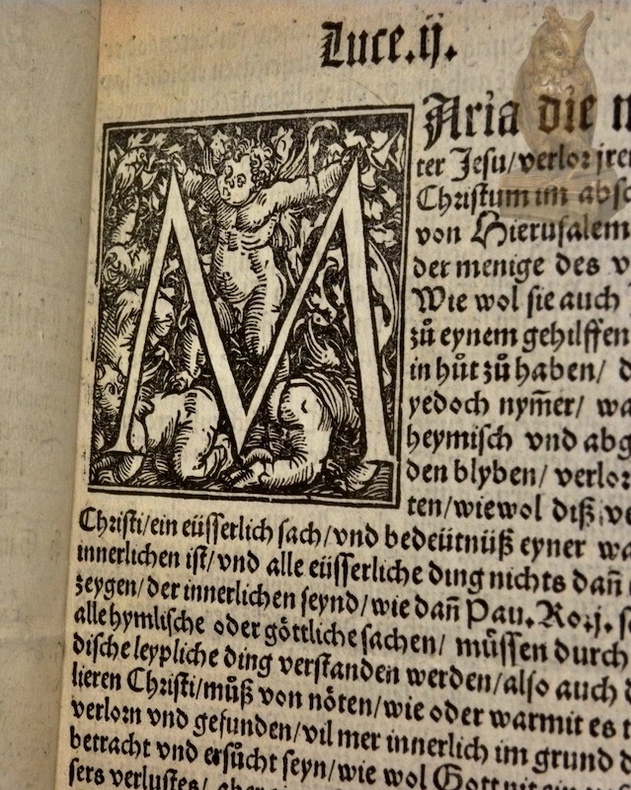 Luce.ij.
MAria die m
ter Jesu/verlor jren
Christum im abs
von Hierusalem
der menige des v
Wie wol sie auch
zů eynem gehilffen
in hůt zů haben/ d
yedoch nym̃er/ wa
heymisch vnd abg
den blyben/ verlor
ten/wiewol diß ve
Christi/ein eüsserlich sach/vnd bedeütnüß eyner wa
innerlichen ist/vnd alle eüsserliche ding nichts dañ
zeygen/der innerlichen seynd/wie dañ Pau. Ro.j. s
alle hymlische oder göttliche sachen/ müssen durch
dische leypliche ding verstanden werden/also auch d
lieren Christi/můß von nöten/wie oder warmit es
verlorn vnd gefunden/vil mer innerlich im grund d
betracht vnd ersůcht seyn/wie wol Gott nit ein
sers verlustes/ aber